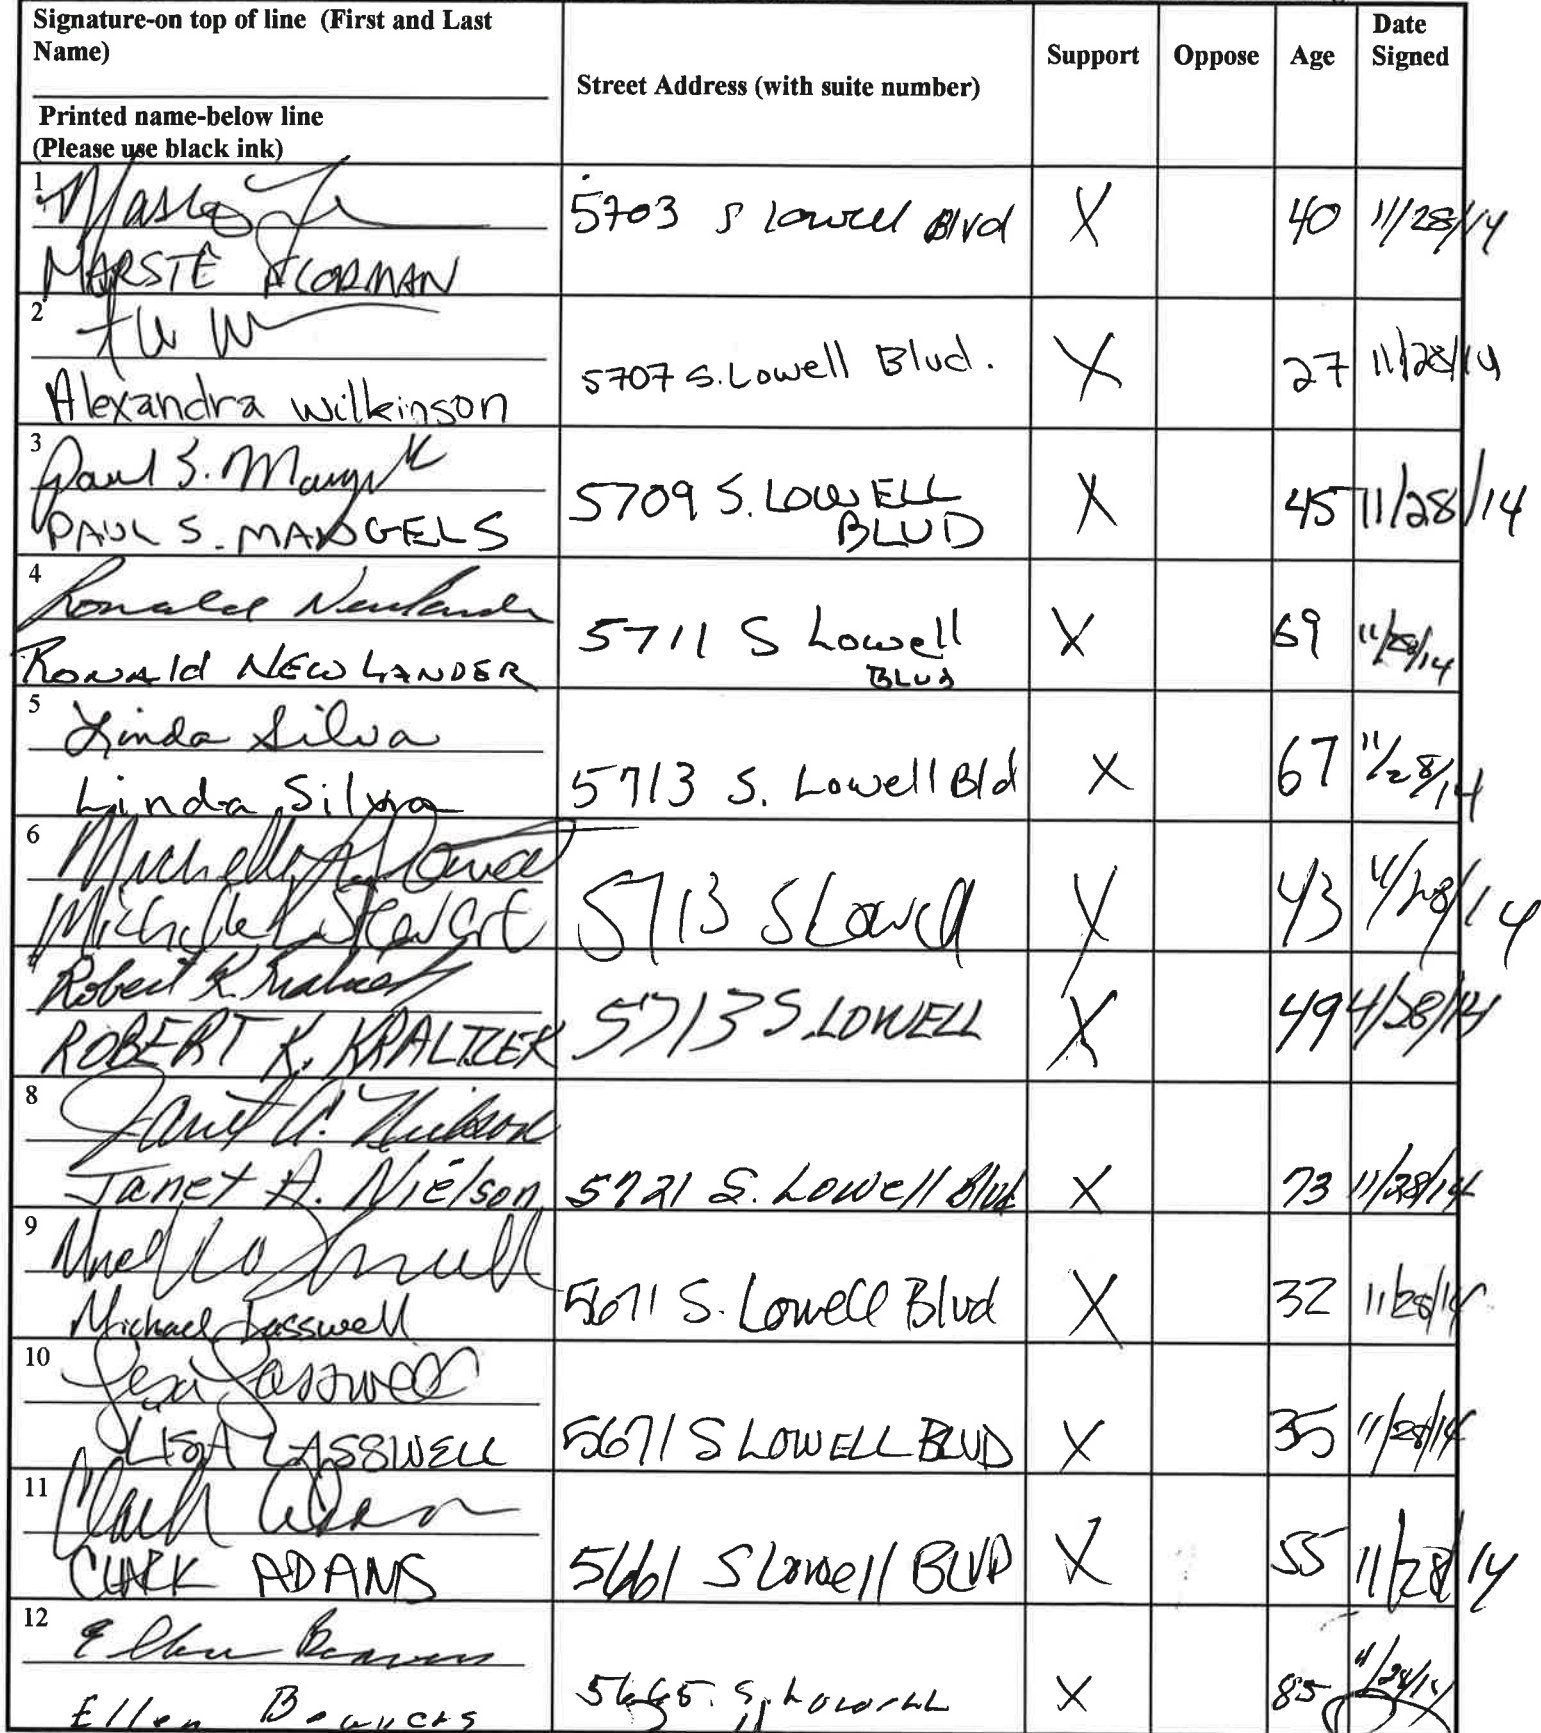 Signature-on top of line (First and Last Name)
Printed name-below line
(Please use black ink)
Street Address (with suite number)
Support
Oppose
Age
Date Signed
1
MARSTE FLORMAN
5703 S Lowell Blvd X 40 11/28/14
2
Alexandra Wilkinson
5707 S. Lowell Blvd. X 27 11/28/14
3 Paul S.
PAUL S. MANGELS
5709 S. LOWELL
BLVD
X 45 11/28/14
4 Ronald
RONALD NEWLANDER
5711 S Lowell
BLVD
X 69 11/28/14
5 Linda Silva
Linda Silva
5713 S. Lowell Bld X 67 11/28/14
6 Michelle
Michelle L Stewart
5713 S Lowell X 43 11/28/14
Robert K.
ROBERT K. KRALICEK
5713 S. LOWELL X 49 11/28/14
8 Janet A. Nielson
Janet A. Nielson
5721 S. Lowell Blvd X 73 11/28/14
9
Michael Lasswell
5671 S. Lowell Blvd X 32 11/28/14
10 Lisa Lasswell
LISA LASSWELL
5671 S LOWELL BLVD X 35 11/28/14
11 Clark Adams
CLARK ADAMS
5661 S Lowell BLVD X 55 11/28/14
12 Ellen
Ellen
5665 S. Lowell X 85 11/28/14